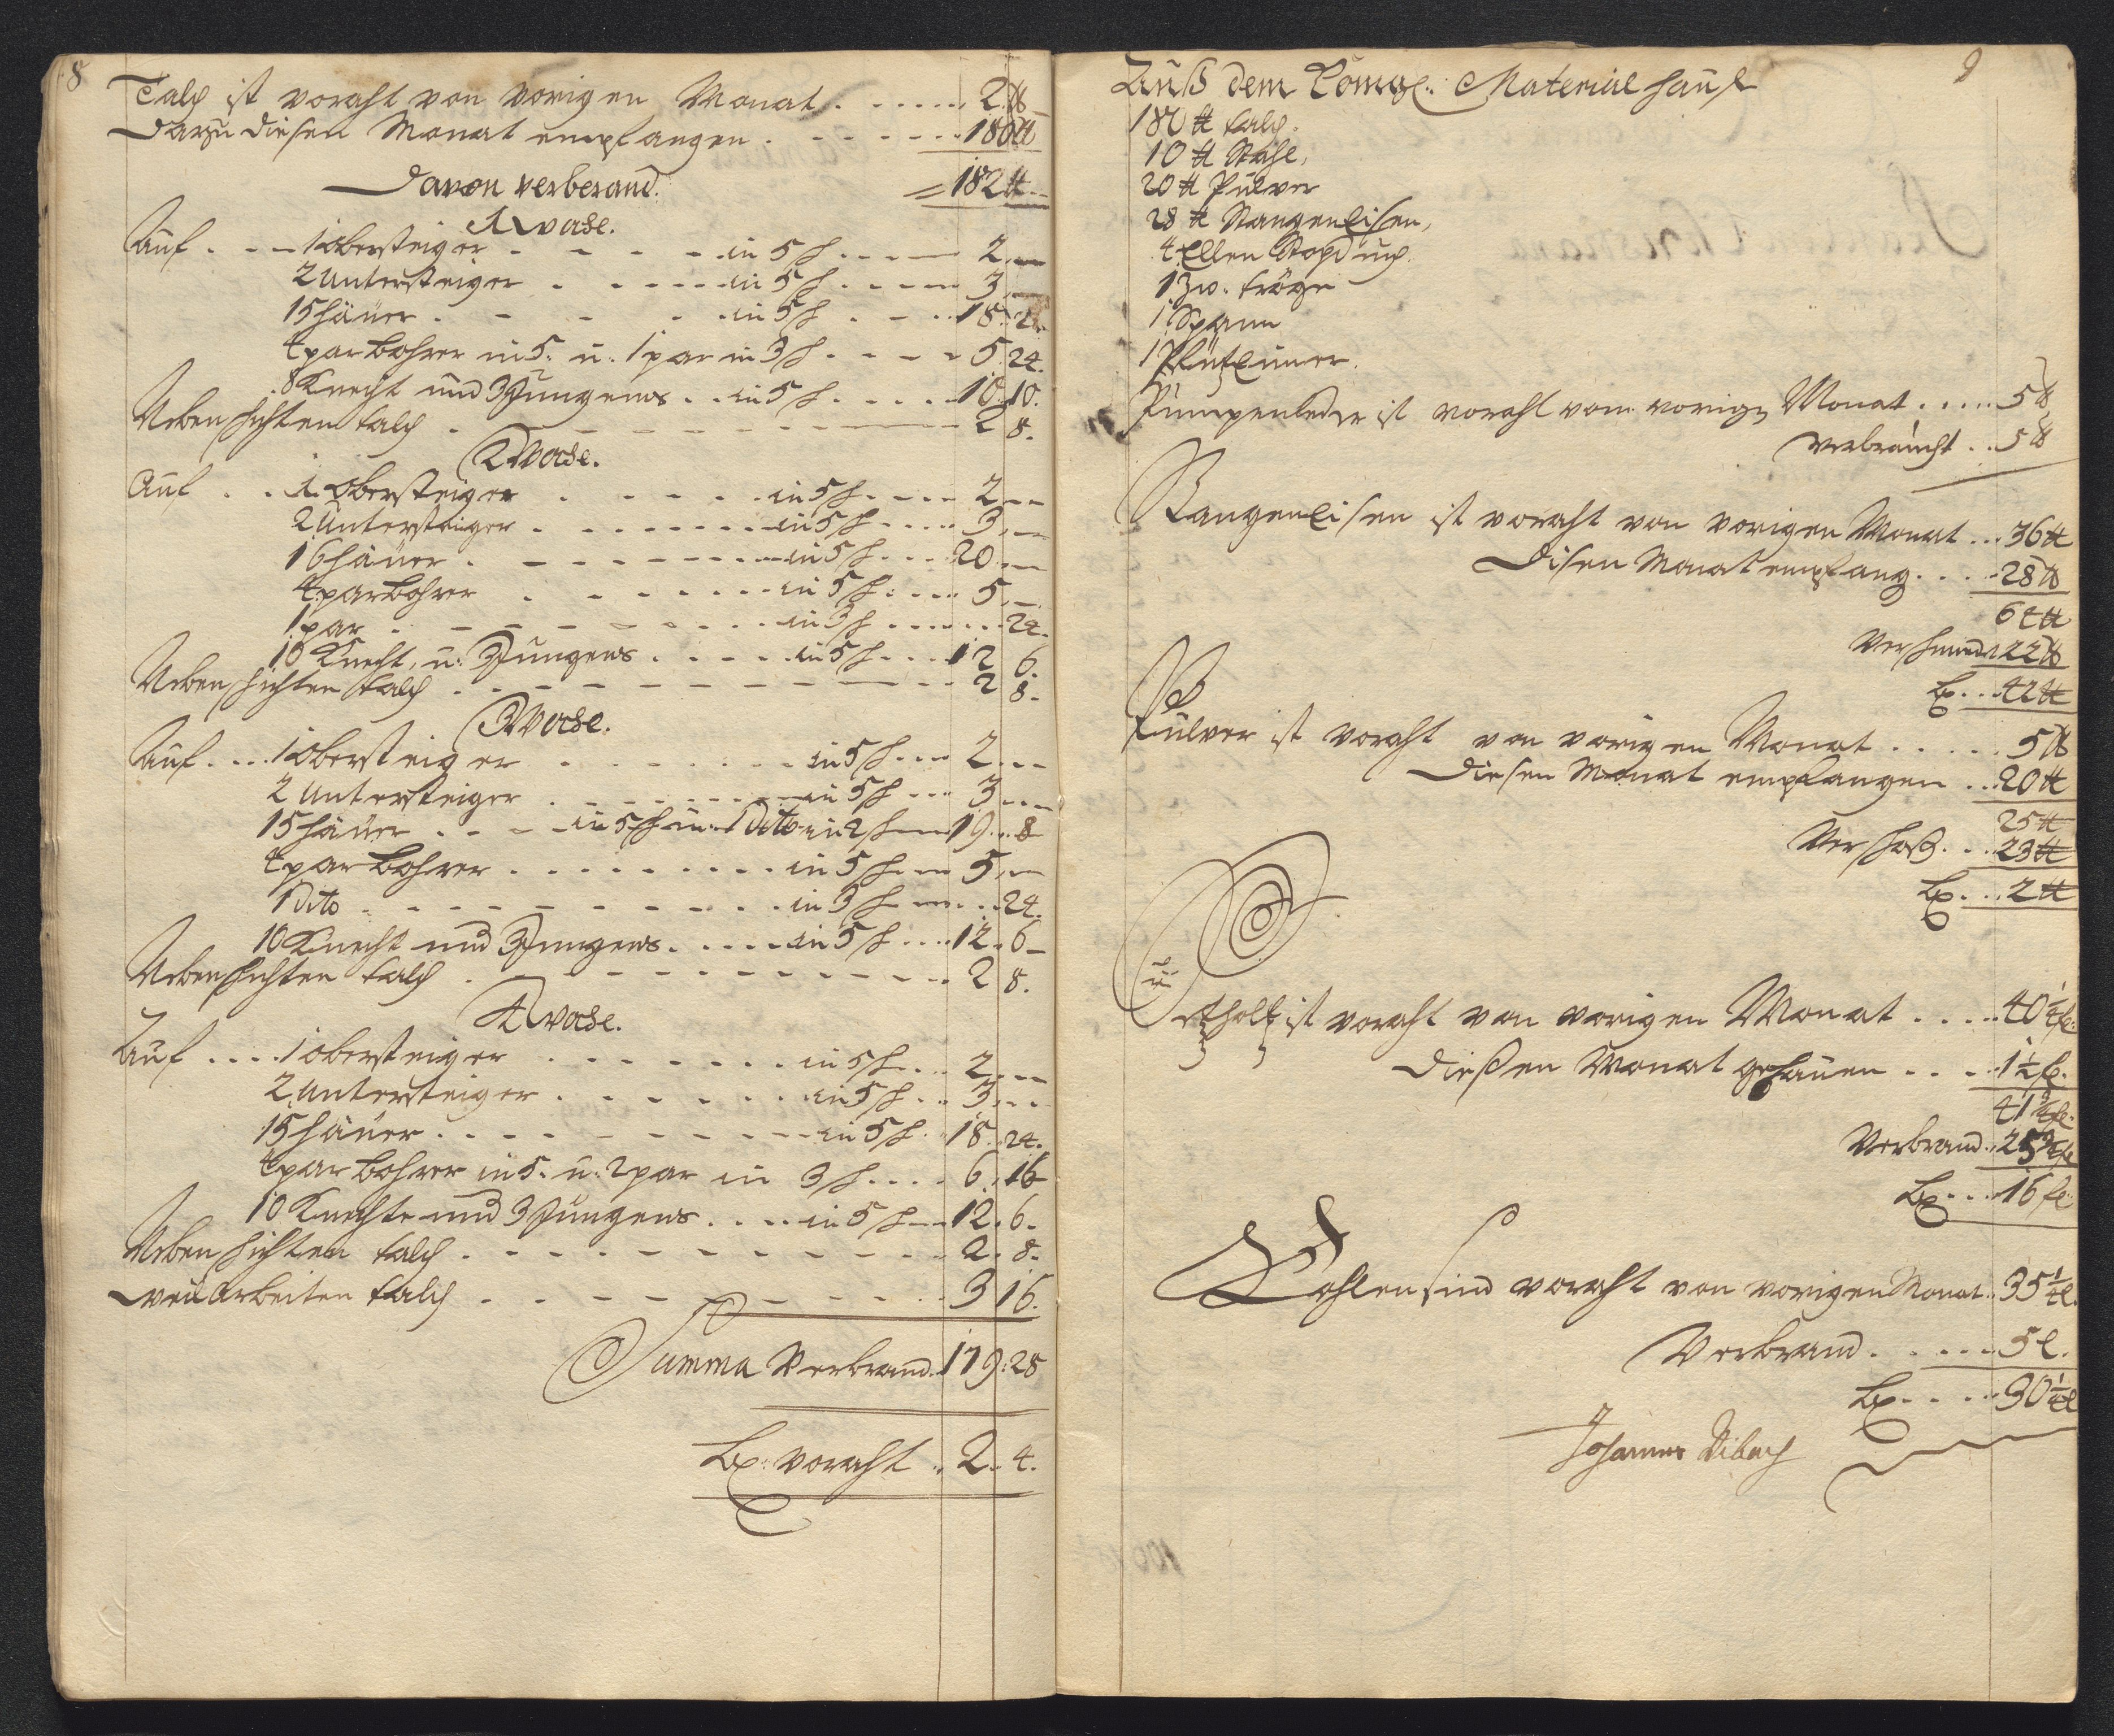 8
Talch ist voraht von vorigen Monat . . . . . 2 ℔
Darzu diesen Monat empfangen . . . . . . 180 ℔
Davon verberand. = 182 ℔
1 Woche.
Auf . . . 1 obersteiger . . . . in 5 sch . . . 2 . —
2 Untersteiger . . . . . in 5 sch . . . . 3 . —
15 häuer . . . . . in 5 sch . . . 18 . 24
4 par bohrer in 5. u: 1 par in 3 sch . . . . 5 . 24.
8 Knecht und 3 Jungens . . in 5 sch . . . . 10 . 10.
Neben schichten talch . . . . . . 2 8.
2 Woche.
Auf . . 1. obersteiger . . . . . in 5 sch . . . . 2 . —
2 Untersteiger . . . . . . . in 5 sch . . . . 3 . —
16 häuer . . . . . . . in 5 sch . . . 20 . —
4 par bohrer . . . . . . . in 5 sch . . . . 5 . —
1 par . . . . . . . . in 3 sch . . . . . . . 24.
10 Knecht, u: 3 Jungens . . . . . in 5 sch . . . 12 6.
Neben schichten talch . . . . . . . . . 2 8.
3 Woche.
Auf . . . 1 obersteiger . . . . . . . in 5 sch . . . 2 . . .
2 Untersteiger . . . . . . . in 5 sch . . . 3 . . .
15 häuer . . . in 5 sch u: 1 dito in 2 sch 19 . . 8
4 par bohrer . . . . . . . . in 5 sch . . . 5 . —
1 dito . . . . . . . . . . in 3 sch . . . . . . 24.
10 Knecht und 3 Jungens . . . . . in 5 sch . . . . 12 . 6 —
Neben schichten talch . . . . . . . . . 2 8.
4 Woche.
Auf . . . . 1 obersteiger . . . . . . . in 5 sch . . . 2 . . .
2 Untersteiger . . . . . . in 5 sch . . . 3 . . .
15 häuer . . . . . . . . . in 5 sch . 18 . 24.
4 par bohrer in 5. u: 2 par in 3 sch . . . . 6 . 16
10 Knechte und 3 Jungens . . . . in 5 sch . . 12 . 6.
Neben schichten talch . . . . . . . . . . 2 . 8.
weil arbeiten talch . . . . . . . . . . 3 16.
Summa Verbrand . 179 : 28
bl: voraht . . 2 . 4.
9
Auß dem Königl: Material hauß
180 ℔ talch.
10 ℔ Stahl,
20 ℔ Pulver
28 ℔ Stangen Eisen,
4 Ellen
1 Zw. tröge
1 Spann
1 Pfütz eimer.
Pumpenleder ist voraht vom vorign Monat . . . . . 5 ℔
verbraucht . . 5 ℔
Stangen Eisen ist voraht von vorigen Monat . . . 36 ℔
Disen Monat empfang . . . . 28 ℔
64 ℔
Verschmid 22 ℔
bl . . . 42 ℔
Pulver ist voraht von vorigen Monat . . . . . 5 ℔
Diesen Monat empfangen . . . 20 ℔
25 ℔
Verschoß . . . 23 ℔
bl . . . 2 ℔
holtz ist voraht von vorigen Monat . . . . . 40 1/4 f:
Dießen Monat gehauen . . . . 1 1/2 f.
41 3/4 f:
Verbrand . . 25 3/4 f
bl . . . 16 f:
Kohlen sind voraht von vorigen Monat . . 35 1/4 l.
Verbrand . . . . . . 5 l.
bl . . . . . 30 1/4 l
Johannes